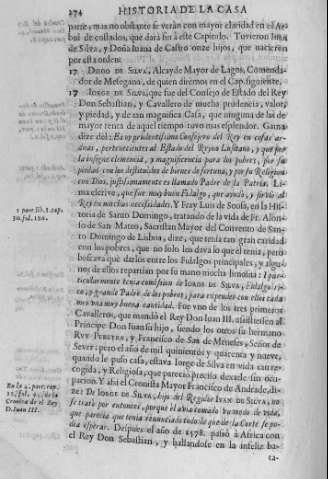 274 HISTORIA DE LA CASA
parte, mas no obstante se verán con mayor claridad en el Arbol
de costados, que dará fin à este Capitulo. Tuvieron Iuan
de Silva, y Doña Iuana de Castro onze hijos, que nacieron
por esta orden:
17 DIOGO DE SILVA, Alcayde Mayor de Lagos, Comendador
de Messegana, de quien diremos en el Cap. siguiente.
17 IORGE DE SILVA, que fue del Consejo de Estado del Rey
Don Sebastian, y Cavallero de mucha prudencia, valor,
y piedad, y de tan magnifica Casa, que ninguna de las de
mayor renta de aquel tiempo tuvo mas esplendor.
dize del: Es
pertenecientes al Estado del Reyno Lusitano, y que por
la insigne clemencia, y magnificencia para los pobres,
con los destituidos de bienes de fortuna, y por su Religion
con Dios, justissimamente es llamado Padre de la Patria.
que fue muy buen Fidalgo, que ayudò, y sirviò al
Rey en muchas necessidades. Y Fray Luis de Sousa, en la Historia
de Santo Domingo, tratando de la vida de Fr. Alonso
de San Mateo, Sacristan Mayor del Convento de Santo
Domingo de Lisboa, dize, que tenia tan gran caridad
con los pobres, que no solo les dava lo que èl tenia, pero
buscava què darles entre los Fidalgos principales, y algunos
de ellos repartian por su mano mucha limosna:
particularmente tenia comission de IORGE DE SILVA, Fidalgo rico,
y grande Padre de los pobres, para expender con ellos cada
mes una muy buena cantidad. Fue vno de los tres primeros
Cavalleros, que mandò el Rey Don Iuan III. assistiessen al
Principe Don Iuan su hijo, siendo los otros su hermano
RUY PEREYRA, y Francisco de Sà de Meneses, Señor de
Sever: pero el año de mil quinientos y quarenta y nueve,
quando le puso casa, estava Iorge de Silva en vida tan recogida,
y Religiosa, que pareciò preciso dexarle sin ocupacion.
Y assi el Cronista Mayor Francisco de Andrade, dize:
De IORGE DE SILVA, hijo del Regidor IUAN DE SILVA, no
se tratò por entonces, porque èl avia tomado vn modo de vida,
que parecia que tenia renunciado todo lo que de la Corte se podia
esperar. Despues el año de 1578. passò à Africa con
el Rey Don Sebastian, y hallandose en la infeliz ba-
ta-
1 part. lib. 1. cap.
30. fol. 120.
En la 4. part. cap.
Cronica de el Rey
D. Iuan III.